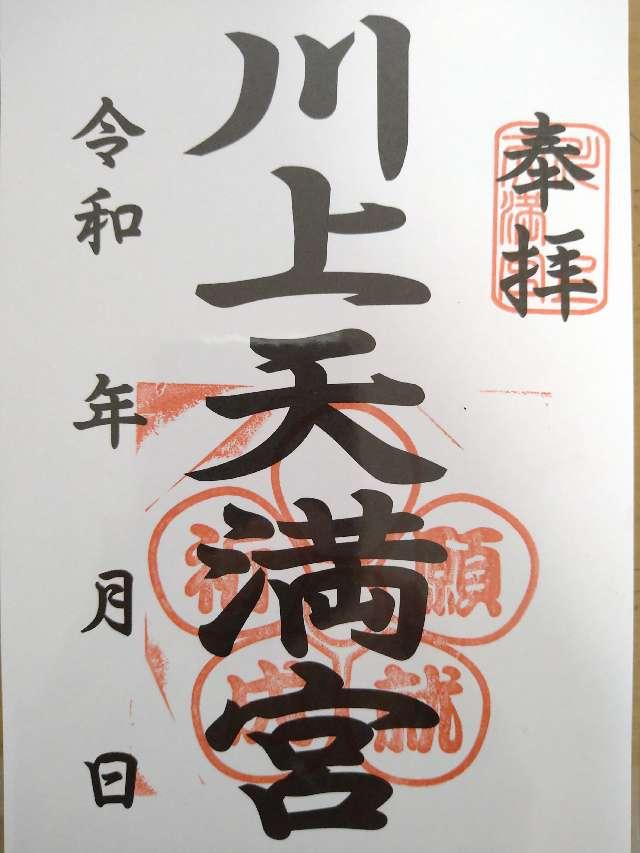 奉拝
川上天満宮
令和 年 月 日
願
就
成